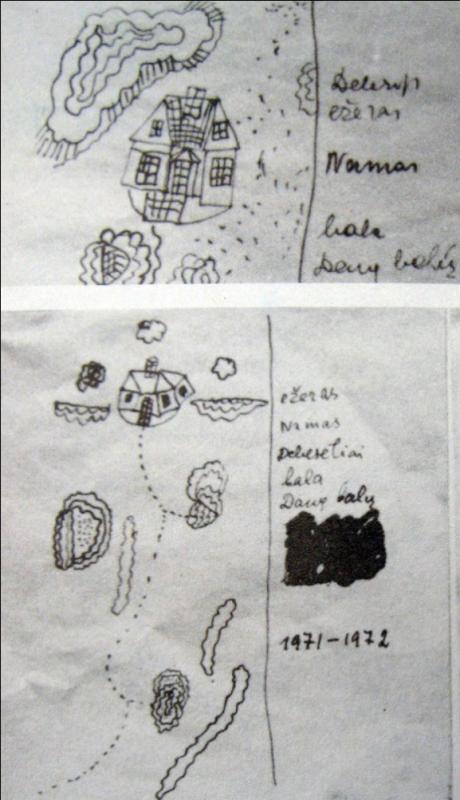 Debesys
ežeras
Namas
bala
Daug balų
ežeras
Namas
Debesėliai
bala
Daug balų
1971-1972